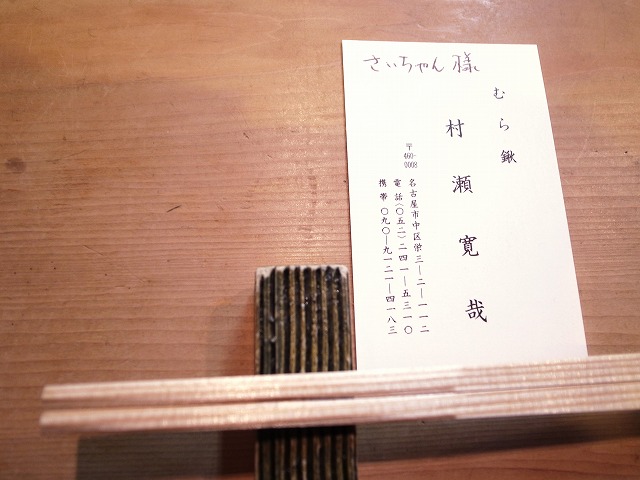 さいちゃん様
むら鍬
村瀬寛哉
〒460-0008
名古屋市中区栄三―二―一一二
電話(〇五二)二四一―五三一〇
携帯〇九〇―九一二一―四一八三